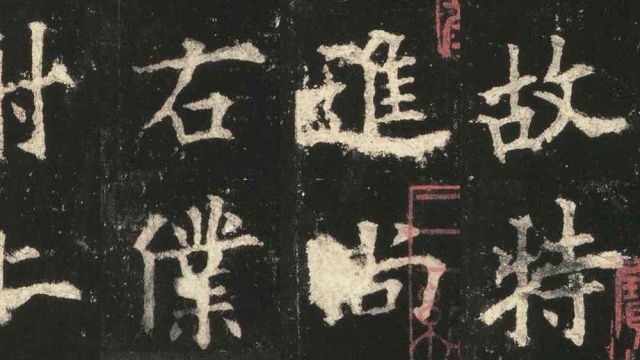 故特
進尚
右僕
射上